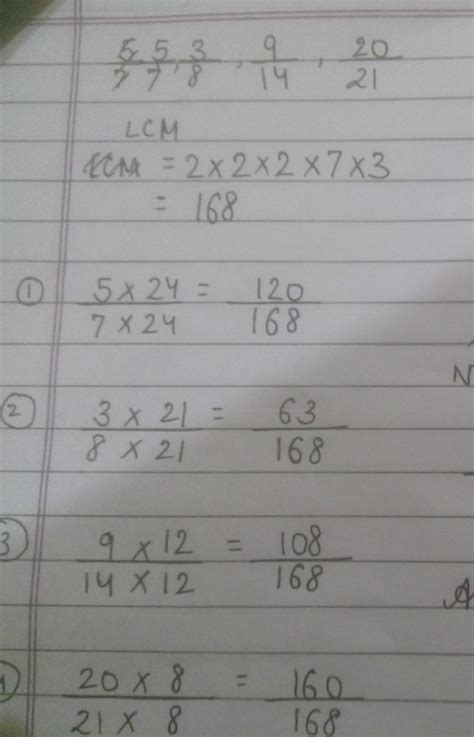 5/7, 5/7, 3/8, 9/14, 20/21
LCM
LCM = 2×2×2×7×3
= 168
① 5×24/7×24 = 120/168
N
② 3×21/8×21 = 63/168
3 9×12/14×12 = 108/168
A
20×8/21×8 = 160/168